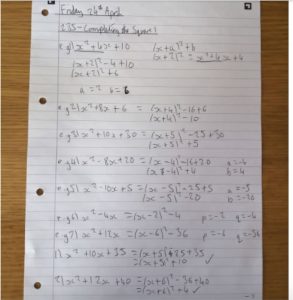 Friday 24th April
235 - Completing the Square 1
e.g1) x² + 4x + 10 (x + a)² + b
(x+2)² - 4 + 10 (x+2)² = x² + 4x + 4
(x+2)² + 6
a = 2 b = 6
e.g2) x² + 8x + 6 = (x+4)² - 16 + 6
= (x+4)² - 10
e.g3) x² + 10x + 30 = (x+5)² - 25 + 30
= (x+5)² + 5
e.g4) x² - 8x + 20 = (x-4)² - 16 + 20 a = -4
(x-4)² + 4 b = 4
e.g5) x² - 10x + 5 = (x-5)² - 25 + 5 a = -5
(x-5)² - 20 b = -20
e.g6) x² - 4x = (x-2)² - 4 p = -2 q = -4
e.g7) x² + 12x = (x-6)² - 36 p = -6 q = -36
1) x² + 10x + 35 = (x+5)² + 25 + 35
= (x+5)² + 10 ✓
2) x² + 12x + 40 = (x+6)² - 36 + 40
= (x+6)² + 4 ✓